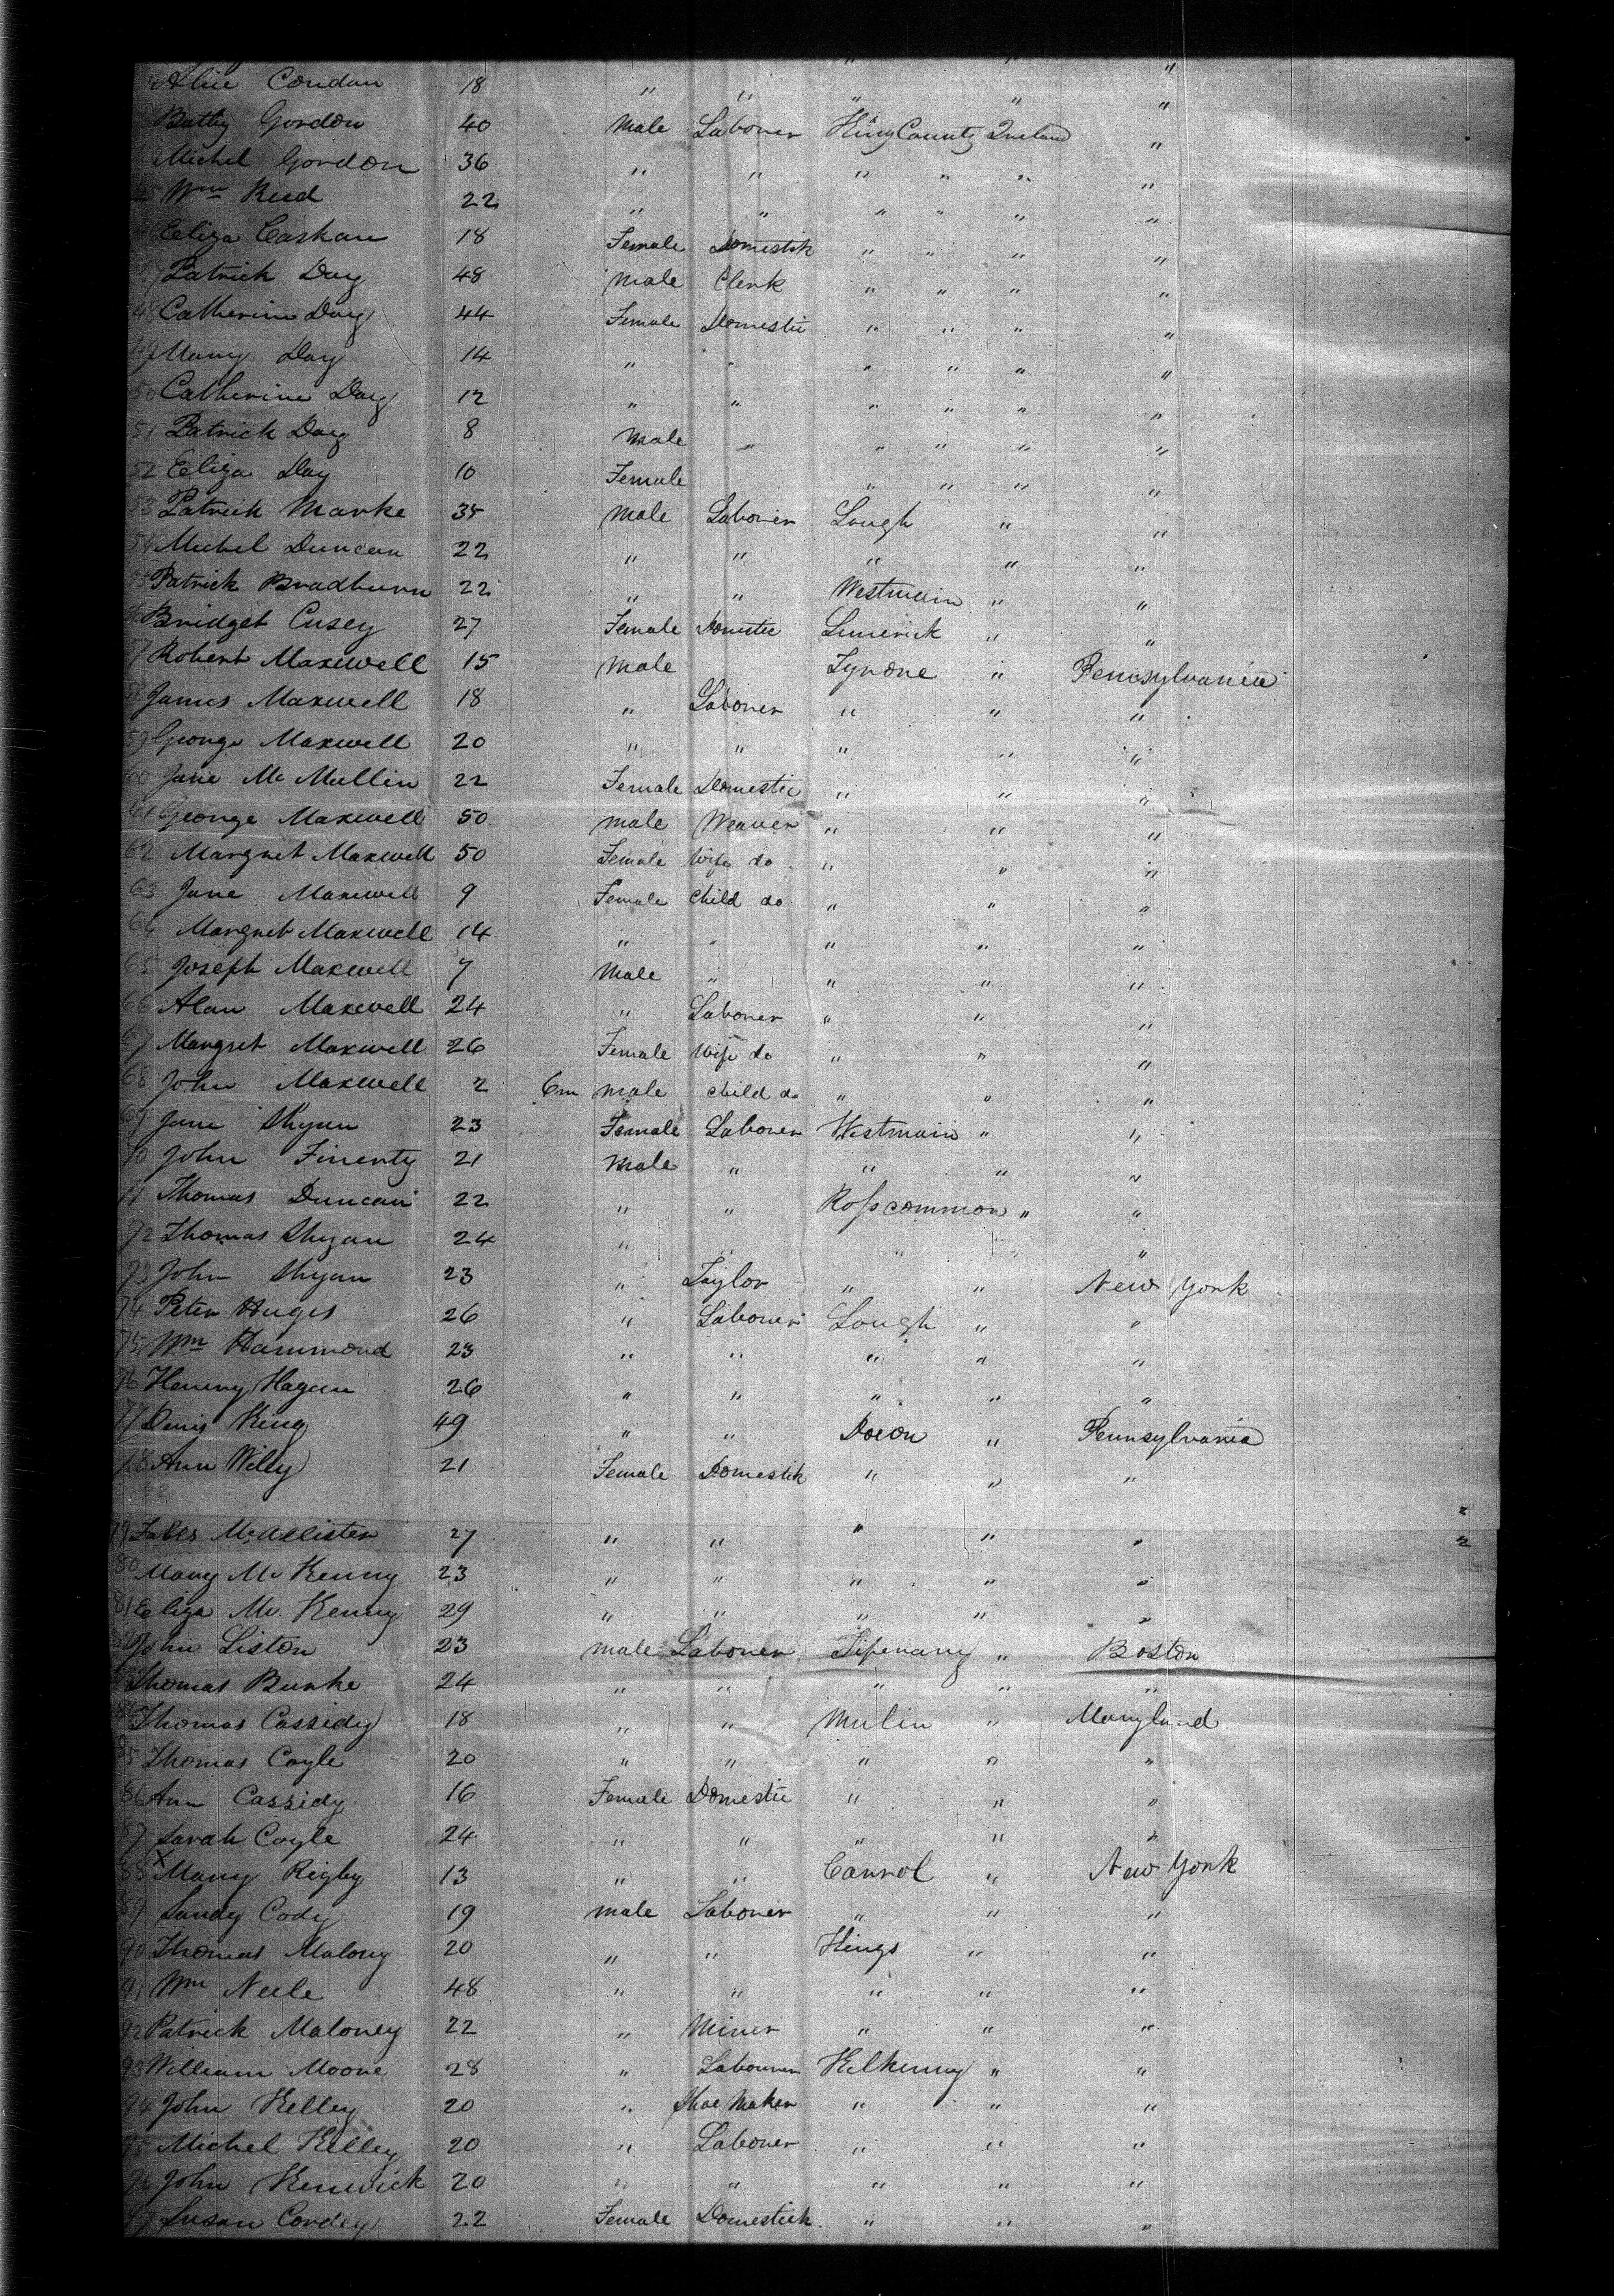 Alice Condan 18 " " " " "
Batty Gordon 40 Male Laborer King County Ireland "
Michel Gordon 36 " " " " " "
45 Wm Reed 22 " " " " " "
46 Eliza Caskan 18 Female Domestik " " " "
47 Patrick Day 48 Male Clerk " " " "
48 Catherine Day 44 Female Domestic " " " "
49 Mary Day 14 " " " " " "
50 Catherine Day 12 " " " " " "
51 Patrick Day 8 Male " " " " "
52 Eliza Day 10 Female " " " "
53 Patrick Marke 35 Male Laborer Lough " "
54 Michel Duncan 22 " " " " "
55 Patrick Bradburn 22 " " Westmain " "
56 Bridget Cusey 27 Female Domestic Limerick " "
57 Robert Maxwell 15 Male Tyrone " Pennsylvania
58 James Maxwell 18 " Laborer " " "
59 George Maxwell 20 " " " " "
60 Jane Mc Mullin 22 Female Domestic " " "
61 George Maxwell 50 Male Weaver " " "
62 Margret Maxwell 50 Female Wife do " " "
63 Jane Maxwell 9 Female Child do " " "
64 Margret Maxwell 14 " " " " "
65 Joseph Maxwell 7 Male " " " "
66 Alan Maxwell 24 " Laborer " " "
67 Margret Maxwell 26 Female Wife do " " "
68 John Maxwell 2 6m Male Child do " " "
69 Jane Shyan 23 Female Laborer Westmain " "
70 John Finerty 21 Male " " " "
71 Thomas Duncan 22 " " Rosscommon " "
72 Thomas Shyan 24 " " " " "
73 John Shyan 23 " Taylor " " New York
74 Peter Huges 26 " Laborer Lough " "
75 Wm Hammond 23 " " " " "
76 Henery Hagan 26 " " " " "
77 Denis King 49 " " Docon " Pennsylvania
78 Ann Willy 21 Female Domestik " " "
79 McAllister 27 " " " " "
80 Mary Mc Kenny 23 " " " " "
81 Eliza Mc. Kenny 29 " " " " "
82 John Liston 23 Male Laborer Tipenary " Boston
83 Thomas Burke 24 " " " " "
84 Thomas Cassidy 18 " " Mulin " Maryland
85 Thomas Coyle 20 " " " " "
86 Ann Cassidy 16 Female Domestic " " "
87 Sarah Coyle 24 " " " " "
88 X Mary Rigby 13 " " Carrol " New York
89 Sandy Cody 19 Male Laborer " " "
90 Thomas Malony 20 " " Kings " "
91 Wm Neele 48 " " " " "
92 Patrick Maloney 22 " Miner " " "
93 William Moore 28 " Labourer Kilkenny " "
94 John Kelley 20 " Shoe Maker " " "
95 Michel Kelley 20 " Laborer " " "
96 John Kenwick 20 " " " " "
97 Susan Cordey 22 Female Domestick " " "